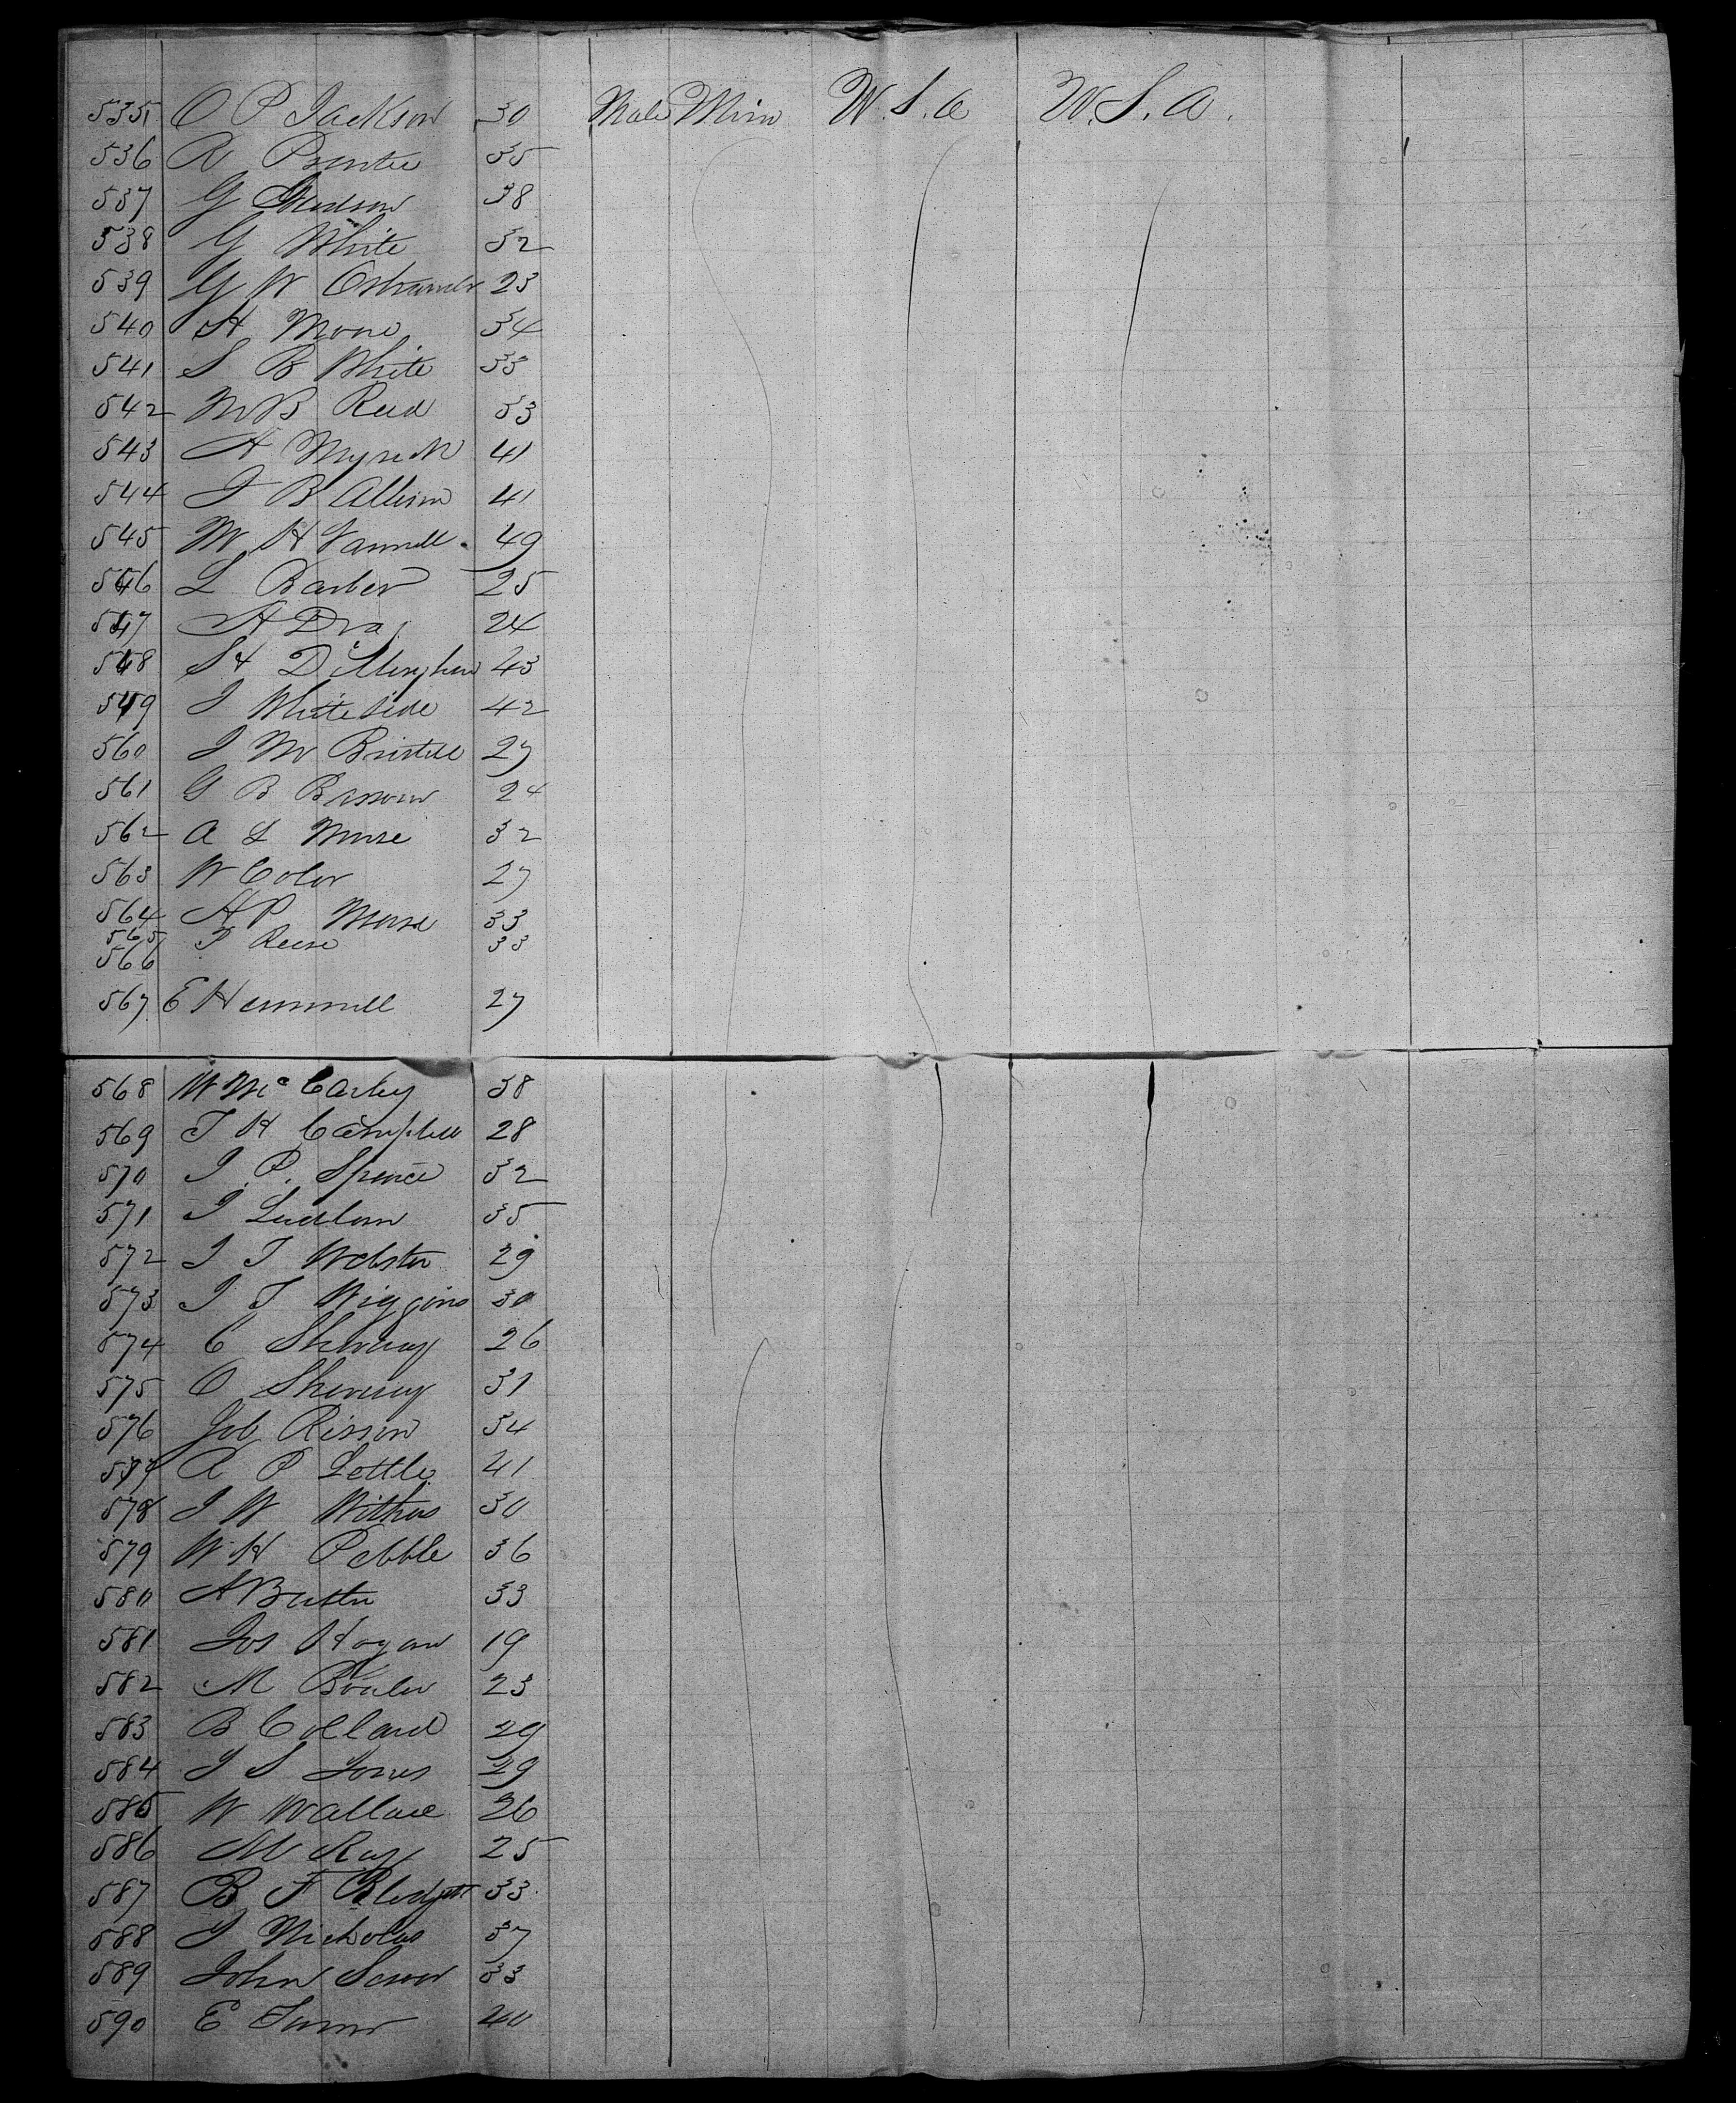 535 O P Jackson 30 Male Min U.S.A U.S.A.
536 A Prentice 35
537 G Hudson 38
538 G White 52
539 G W Ostrander 23
540 H Moore 34
541 S B White 33
542 M B Reed 53
543 A Myrick 41
544 J B Allison 41
545 M H Vannell 49
546 L Barber 25
547 A Dra 24
548 H Dillingham 43
549 J Whiteside 42
560 J M Bristell 27
561 G B 24
562 A L Morse 32
563 W Coler 27
564 H P Morse 33
565 J Reese 33
566
567 E Hammill 27
568 W McCarley 38
569 T H Campbell 28
570 J. P. Spence 32
571 J Ludlow 35
572 J J Webster 29
573 J T Wiggins 30
574 C 26
575 O 31
576 Job Risson 34
577 A P Lettle 41
578 J W Withers 30
579 W H Pebble 36
580 A 33
581 Jos Hogan 19
582 M 23
583 B Collard 29
584 J S Jones 29
585 W Wallace 26
586 M Ray 25
587 B F Blodgett 33
588 J Nicholas 37
589 John 33
590 E Turner 40